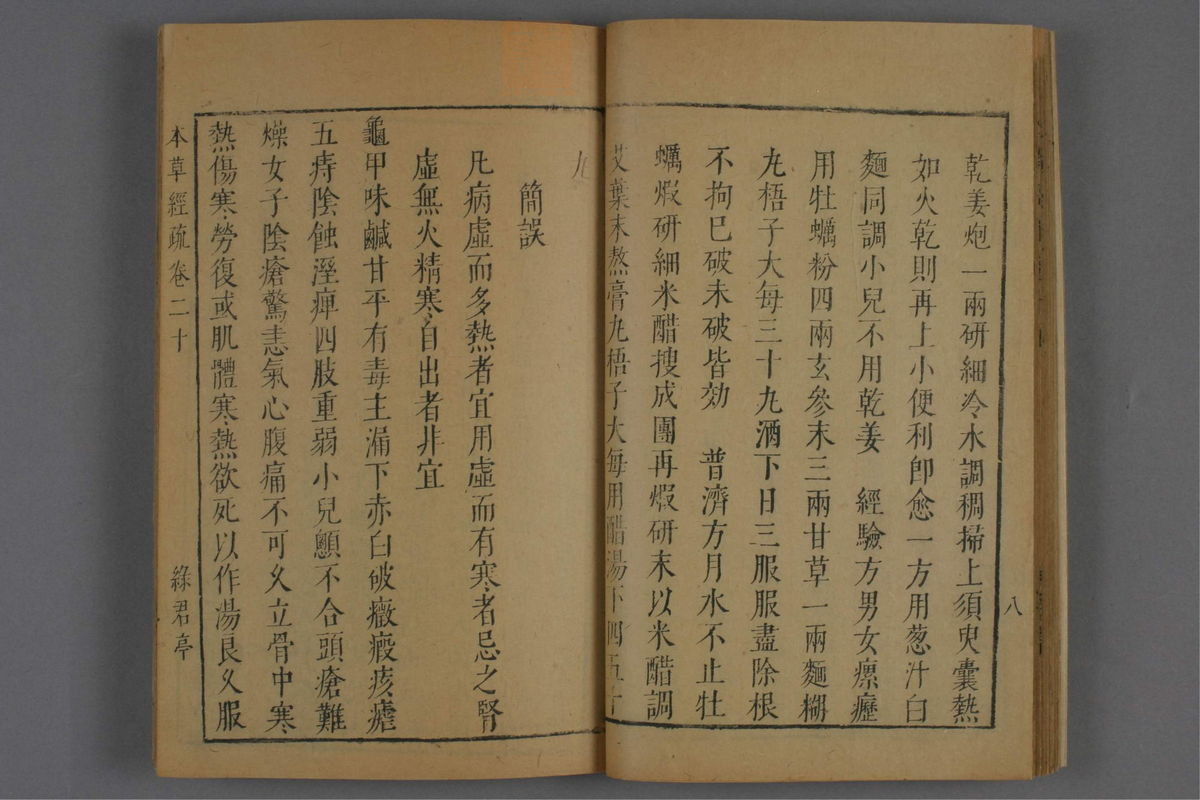 八
乾姜炮一兩研細冷水調稠掃上須臾囊熱
如火乾則再上小便利卽愈一方用葱汁白
麵同調小兒不用乾姜　經驗方男女瘰癧
用牡蠣粉四兩玄參末三兩甘草一兩麵糊
丸梧子大每三十丸酒下日三服服盡除根
不拘已破未破皆効　普濟方月水不止牡
蠣煆研細米醋搜成團再煆研末以米醋調
艾葉末熬膏丸梧子大每用醋湯下四五十
丸
簡誤
凡病虛而多熱者宜用虛而有寒者忌之腎
虛無火精寒自出者非宜
龜甲味鹹甘平有毒主漏下赤白破癥瘕痎瘧
五痔陰蝕溼痺四肢重弱小兒顖不合頭瘡難
燥女子陰瘡驚恚氣心腹痛不可久立骨中寒
熱傷寒勞復或肌體寒熱欲死以作湯良久服
本草經疏　卷二十　綠君亭